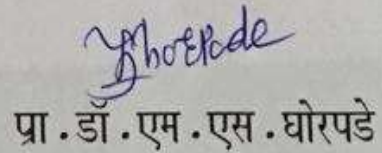 Ghorpade
प्रा.डॉ.एम.एस.घोरपडे